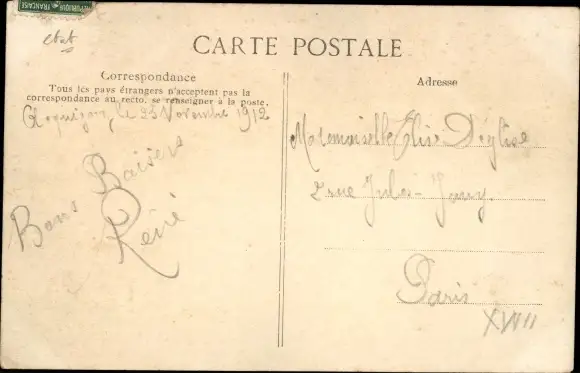 REPUBLIQUE FRANÇAISE
etat
CARTE POSTALE
Correspondance
Tous les pays étrangers n'acceptent pas la
correspondance au recto, se renseigner à la poste.
le 25 Novembre 1912
Bons Baisers
René
Adresse
Mademoiselle Elise Déglise
2 rue Jules-Jouy
Paris
XVIII